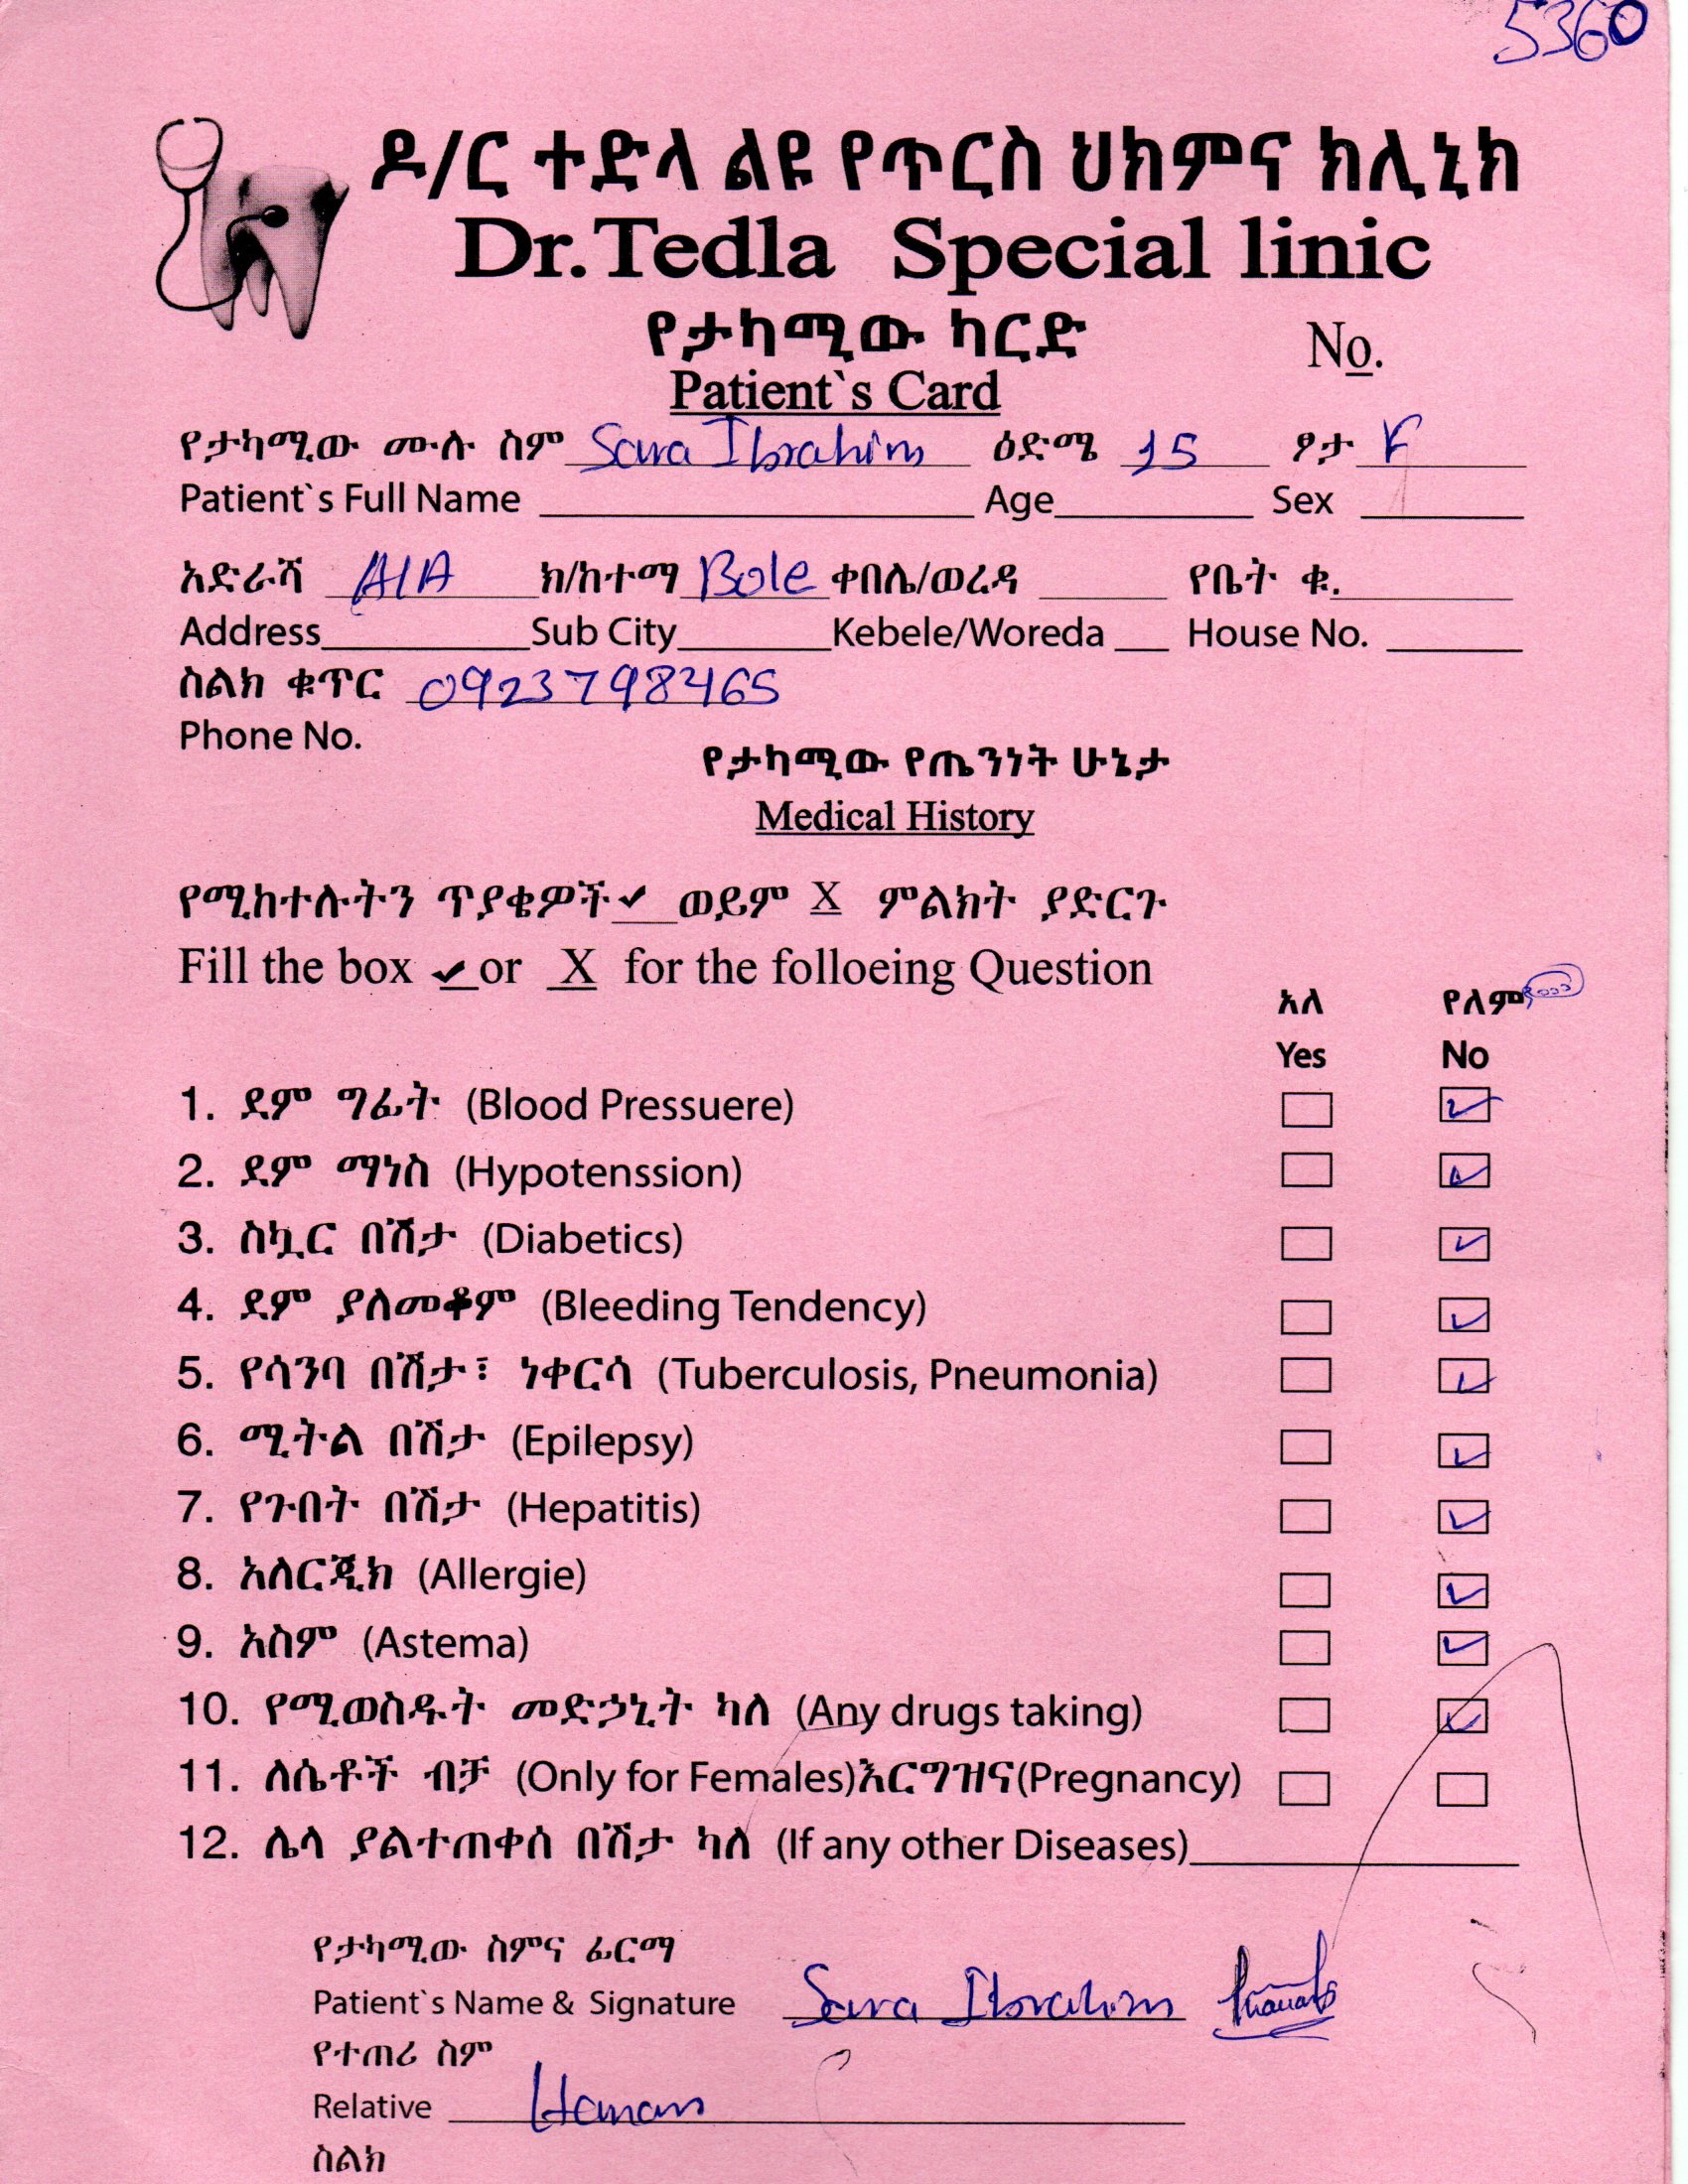 5360
ዶ/ር ተድላ ልዩ የጥርስ ህክምና ክሊኒክ
Dr.Tedla Special linic
የታካሚው ካርድ
No.
Patient`s Card
የታካሚው ሙሉ ስም Sara Ibrahim ዕድሜ 15 ፆታ F
Patient`s Full Name Age Sex
አድራሻ A/A ክ/ከተማ Bole ቀበሌ/ወረዳ የቤት ቁ.
Address Sub City Kebele/Woreda House No.
ስልክ ቁጥር 0923798465
Phone No.
የታካሚው የጤንነት ሁኔታ
Medical History
የሚከተሉትን ጥያቄዎች ✓ ወይም X ምልክት ያድርጉ
Fill the box ✓ or X for the folloeing Question
አለ የለም
Yes No
1. ደም ግፊት (Blood Pressuere) ✓
2. ደም ማነስ (Hypotenssion) ✓
3. ስኳር በሽታ (Diabetics) ✓
4. ደም ያለመቆም (Bleeding Tendency) ✓
5. የሳንባ በሽታ፣ ነቀርሳ (Tuberculosis, Pneumonia) ✓
6. ሚትል በሽታ (Epilepsy) ✓
7. የጉበት በሽታ (Hepatitis) ✓
8. አለርጂክ (Allergie) ✓
9. አስም (Astema) ✓
10. የሚወስዱት መድኃኒት ካለ (Any drugs taking) ✓
11. ለሴቶች ብቻ (Only for Females)እርግዝና(Pregnancy)
12. ሌላ ያልተጠቀሰ በሽታ ካለ (If any other Diseases)
የታካሚው ስምና ፊርማ
Patient`s Name & Signature Sara Ibrahim
የተጠሪ ስም
Relative Hanan
ስልክ